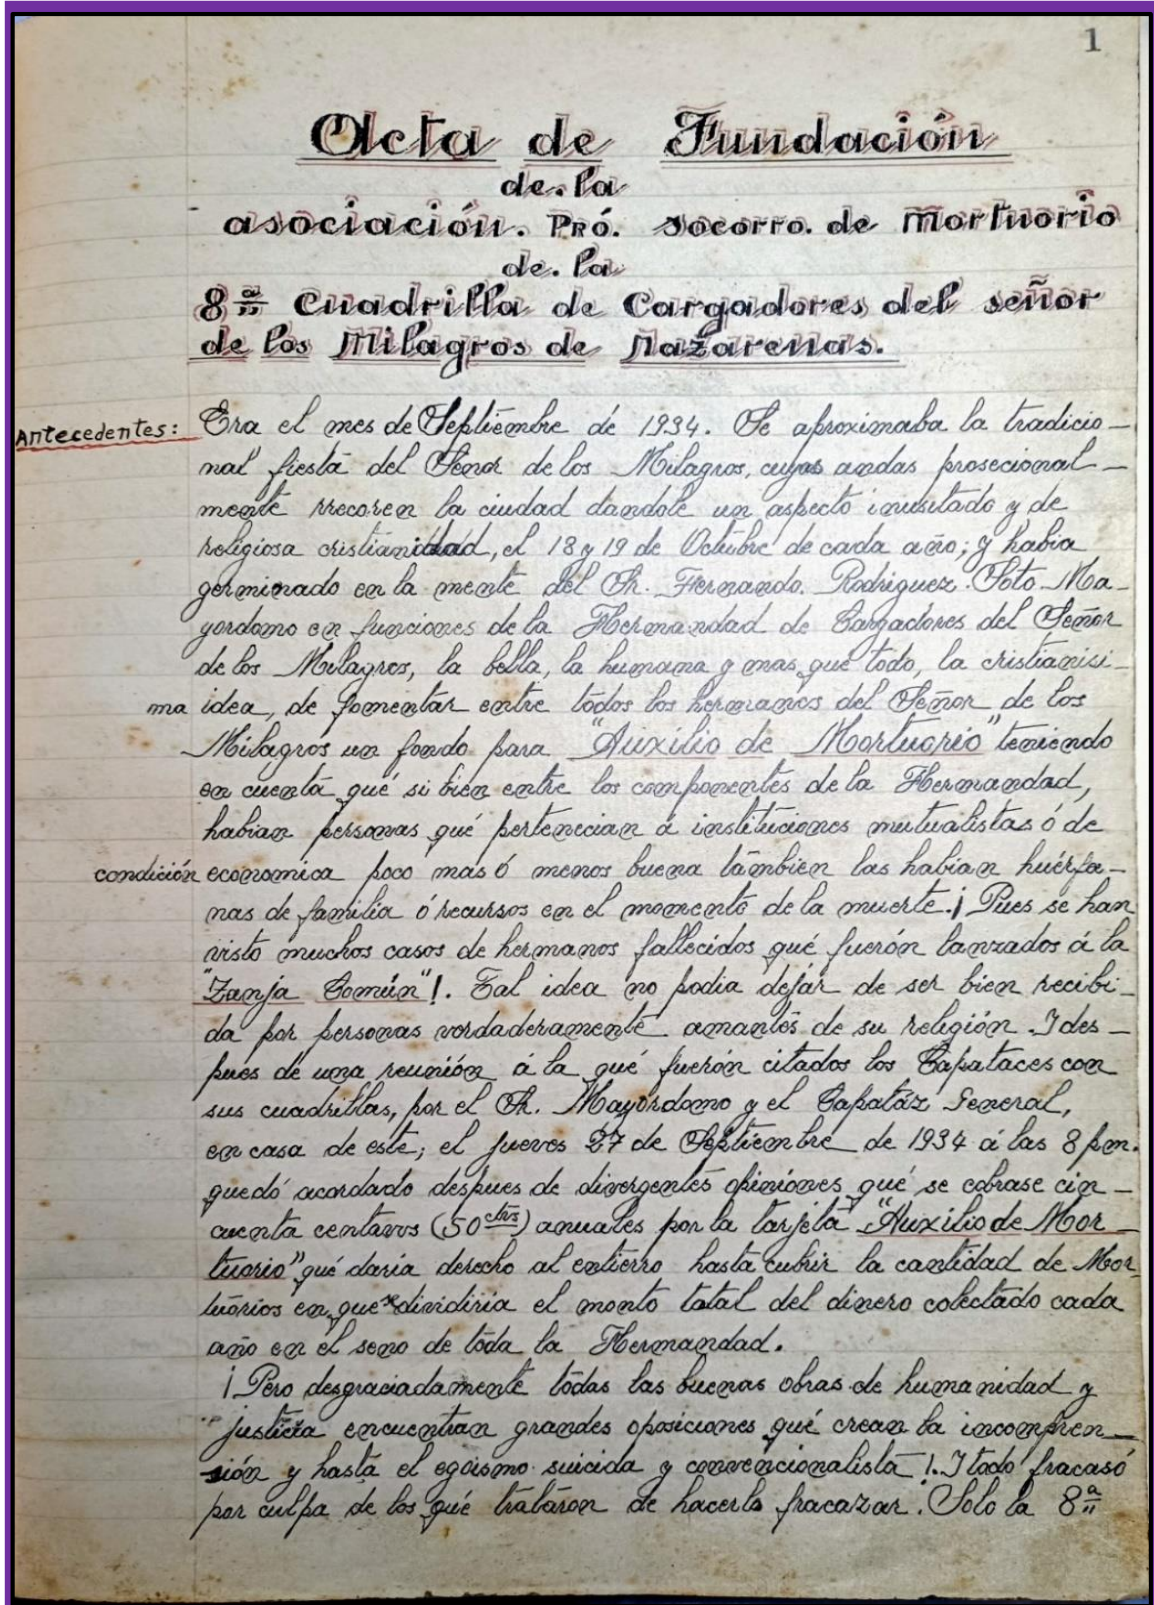 1
Acta de Fundación
de. la
asociación. Pró. Socorro. de Mortuorio
de. la
8ª Cuadrilla de Cargadores del señor
de los Milagros de Nazarenas.
Antecedentes: Era el mes de Septiembre de 1934. Se aproximaba la tradicio–
nal fiesta del Señor de los Milagros, cuyas andas prosecional–
mente rrecoren la ciudad dandole un aspecto inusitado y de
religiosa cristianidad, el 18 y 19 de Octubre de cada año; y habia
germinado en la mente del Sr. Fernando. Rodriguez. Soto Ma–
yordomo en funciones de la Hermandad de Cargadores del Señor
de los Milagros, la bella, la humama y mas que todo, la cristianisi–
ma idea, de fomentar entre todos los hermanos del Señor de los
Milagros un fondo para "Auxilio de Mortuorio" teniendo
en cuenta qué si bien entre los componentes de la Hermandad,
habian personas qué pertenecian á instituciones mutualistas ó de
condición economica poco mas ó menos buena támbien las habian huérfa–
nas de familia ó recursos en el momento de la muerte.¡ Pues se han
visto muchos casos de hermanos fallecidos qué fuerón lanzados á la
"Zanja Común"!. Tal idea no podia dejár de ser bien recibi–
da por personas verdaderamente amantes de su religión. I des–
pues de una reunión á la qué fuerón citados los Capataces con
sus cuadrillas, por el Sr. Mayórdomo y el Capatáz General,
en casa de este; el jueves 27 de Septiembre de 1934 á las 8 pm.
quedó acordado despues de divergentes opiniónes qué se cobrase cin–
cuenta centavos (50 ctvs) anuales por la tarjeta "Auxilio de Mor–
tuorio" qué daria derecho al entierro hasta cubrir la cantidad de Mor–
tuórios en que dividiria el monto total del dinero colectado cada
año en el seno de toda la Hermandad.
¡ Pero desgraciadamente todas las buenas obras de humanidad y
justicia encuentran grandes oposiciones qué crean la incompren–
sión y hasta el egoismo suicida y convencionalista !. I todo fracasó
por culpa de los qué tratáron de hacerla fracazar. Solo la 8ª